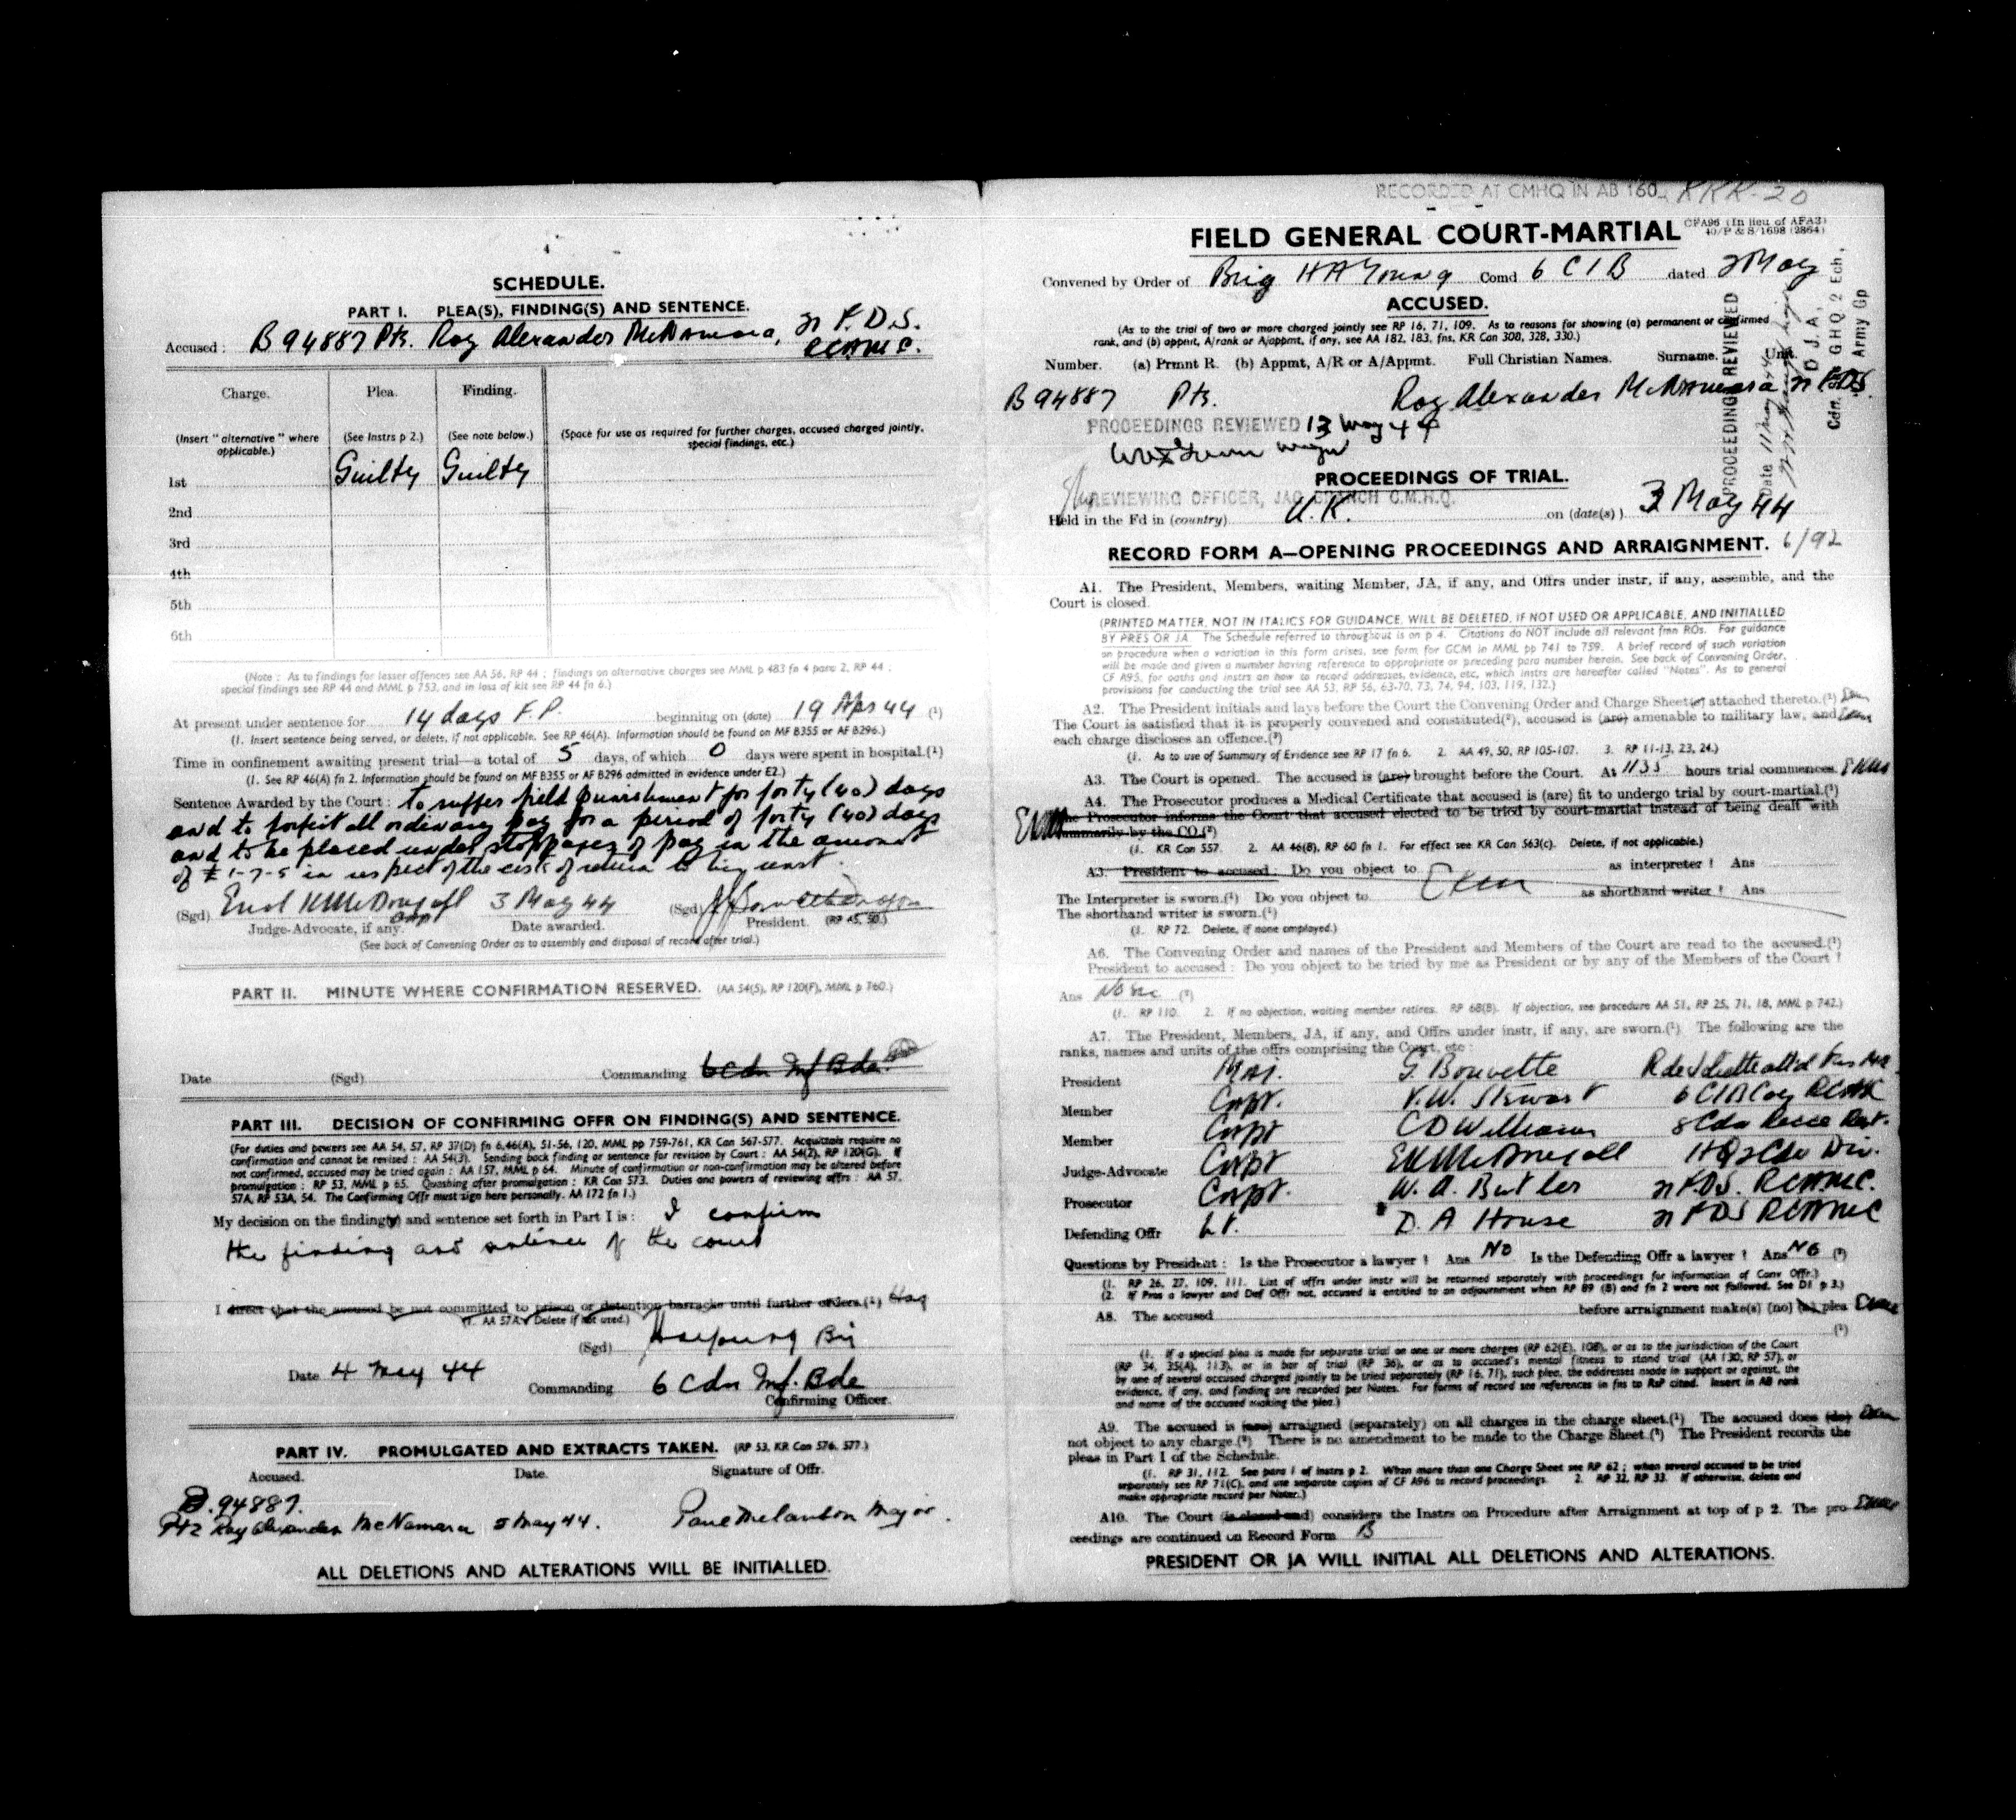 4
SCHEDULE.
PART I. PLEA(S), FINDING(S) AND SENTENCE.
Accused : B 94887 Pte. Roy Alexander McNamara, 21 F.D.S.
RCAMC.
Charge. Plea. Finding.
(Insert "alternative" where applicable.) (See Instrs p 2.) (See note below.) (Space for use as required for further charges, accused charged jointly, special findings, etc.)
1st Guilty Guilty
2nd
3rd
4th
5th
6th
(Note : As to findings for lesser offences see AA 56, RP 44 ; findings on alternative charges see MML p 483 fn 4 para 2, RP 44 ;
special findings see RP 44 and MML p 753, and in loss of kit see RP 44 fn 6.)
At present under sentence for 14 days F.P. beginning on (date) 19 Apr 44 (1)
(1. Insert sentence being served, or delete, if not applicable. See RP 46(A). Information should be found on MF B355 or AF B296.)
Time in confinement awaiting present trial—a total of 5 days, of which 0 days were spent in hospital.(1)
(1. See RP 46(A) fn 2. Information should be found on MF B355 or AF B296 admitted in evidence under E2.)
Sentence Awarded by the Court : to suffer field punishment for forty (40) days
and to forfeit all ordinary pay for a period of forty (40) days
and to be placed under stoppages of pay in the amount
of £1-7-5 in respect of the costs of return to his unit.
(Sgd) E M McDougall Capt 3 May 44 (Sgd)
Judge-Advocate, if any. Date awarded. President. (RP 45, 50.)
(See back of Convening Order as to assembly and disposal of record after trial.)
PART II. MINUTE WHERE CONFIRMATION RESERVED. (AA 54(5), RP 120(F), MML p 760.)
Date (Sgd) Commanding 6 Cdn Inf Bde.
PART III. DECISION OF CONFIRMING OFFR ON FINDING(S) AND SENTENCE.
(For duties and powers see AA 54, 57, RP 37(D) fn 6,46(A), 51-56, 120, MML pp 759-761, KR Can 567-577. Acquittals require no
confirmation and cannot be revised : AA 54(3). Sending back finding or sentence for revision by Court : AA 54(2), RP 120(G). If
not confirmed, accused may be tried again : AA 157, MML p 64. Minute of confirmation or non-confirmation may be altered before
promulgation : RP 53, MML p 65. Quashing after promulgation : KR Can 573. Duties and powers of reviewing offrs : AA 57,
57A, RP 53A, 54. The Confirming Offr must sign here personally. AA 172 fn 1.)
My decision on the finding(s) and sentence set forth in Part I is : I confirm
the finding and sentence of the court
I direct that the accused be not committed to prison or detention barracks until further orders.(1) HAY
(1. AA 57A. Delete if not used.)
(Sgd) HA Young Brig
Date 4 May 44 Commanding 6 Cdn Inf. Bde
Confirming Officer.
PART IV. PROMULGATED AND EXTRACTS TAKEN. (RP 53, KR Can 576, 577.)
Accused. Date. Signature of Offr.
B.94887.
Pte Roy Alexander McNamara 5 May 44. Major.
ALL DELETIONS AND ALTERATIONS WILL BE INITIALLED.
RECORDED AT CMHQ IN AB 160
FIELD GENERAL COURT-MARTIAL
CFA96 (In lieu of AFA3)
40/P & S/1698 (2864)
Convened by Order of Brig HA Young Comd 6 C I B dated 2 May
ACCUSED.
(As to the trial of two or more charged jointly see RP 16, 71, 109. As to reasons for showing (a) permanent or confirmed
rank, and (b) appmt, A/rank or A/appmt, if any, see AA 182, 183, fns, KR Can 308, 328, 330.)
Number. (a) Prmnt R. (b) Appmt, A/R or A/Appmt. Full Christian Names. Surname. Unit.
B 94887 Pte. Roy Alexander McNamara 21 FDS
PROCEEDINGS REVIEWED 13 May 44
Major
REVIEWING OFFICER, JAG BRANCH C.M.H.Q.
PROCEEDINGS REVIEWED
Date 11 May 44
D J A,
Cdn. GHQ 2 Ech,
Army Gp
PROCEEDINGS OF TRIAL.
Held in the Fd in (country) U.K. on (date(s)) 3 May 44
RECORD FORM A—OPENING PROCEEDINGS AND ARRAIGNMENT. 6/92
A1. The President, Members, waiting Member, JA, if any, and Offrs under instr, if any, assemble, and the
Court is closed.
(PRINTED MATTER, NOT IN ITALICS FOR GUIDANCE, WILL BE DELETED, IF NOT USED OR APPLICABLE, AND INITIALLED
BY PRES OR JA. The Schedule referred to throughout is on p 4. Citations do NOT include all relevant fmn ROs. For guidance
on procedure when a variation in this form arises, see form for GCM in MML pp 741 to 759. A brief record of such variation
will be made and given a number having reference to appropriate or preceding para number herein. See back of Convening Order,
CF A95, for oaths and instrs on how to record addresses, evidence, etc, which instrs are hereafter called "Notes". As to general
provisions for conducting the trial see AA 53, RP 56, 63-70, 73, 74, 94, 103, 119, 132.)
A2. The President initials and lays before the Court the Convening Order and Charge Sheet(s) attached thereto.(1)
The Court is satisfied that it is properly convened and constituted(2), accused is (are) amenable to military law, and
each charge discloses an offence.(3)
(1. As to use of Summary of Evidence see RP 17 fn 6. 2. AA 49, 50, RP 105-107. 3. RP 11-13, 23, 24.)
A3. The Court is opened. The accused is (are) brought before the Court. At 1135 hours trial commences.
A4. The Prosecutor produces a Medical Certificate that accused is (are) fit to undergo trial by court-martial.(1)
The Prosecutor informs the Court that accused elected to be tried by court-martial instead of being dealt with
summarily by the CO.(2)
(1. KR Can 557. 2. AA 46(8), RP 60 fn 1. For effect see KR Can 563(c). Delete, if not applicable.)
A5. President to accused: Do you object to as interpreter ? Ans
The Interpreter is sworn.(1) Do you object to as shorthand writer ? Ans
The shorthand writer is sworn.(1)
(1. RP 72. Delete, if none employed.)
A6. The Convening Order and names of the President and Members of the Court are read to the accused.(1)
President to accused : Do you object to be tried by me as President or by any of the Members of the Court ?
Ans None (2)
(1. RP 110. 2. If no objection, waiting member retires. RP 68(B). If objection, see procedure AA 51, RP 25, 71, 18, MML p 742.)
A7. The President, Members, JA, if any, and Offrs under instr, if any, are sworn.(1) The following are the
ranks, names and units of the offrs comprising the Court, etc :
President Maj. G. Bouvette
Member Capt. V.W. Stewart 6 CIB Coy RCASC
Member Capt CD Williams 8 Cdn Recce Regt.
Judge-Advocate Capt EM McDougall HQ 2 Cdn Div.
Prosecutor Capt. W. A. Butler 21 FDS. RCAMC.
Defending Offr Lt. D. A House 21 FDS RCAMC
Questions by President : Is the Prosecutor a lawyer ? Ans No Is the Defending Offr a lawyer ? Ans No (2)
(1. RP 26, 27, 109, 111. List of offrs under instr will be returned separately with proceedings for information of Conv Offr.)
(2. If Pros a lawyer and Def Offr not, accused is entitled to an adjournment when RP 89 (B) and fn 2 were not followed. See D1 p 3.)
A8. The accused before arraignment make(s) (no) (a) plea
(1)
(1. If a special plea is made for separate trial on one or more charges (RP 62(E), 108), or as to the jurisdiction of the Court
(RP 34, 35(A), 113), or in bar of trial (RP 36), or as to accused's mental fitness to stand trial (AA 130, RP 57), or
by one of several accused charged jointly to be tried separately (RP 16, 71), such plea, the addresses made in support or against, the
evidence, if any, and finding are recorded per Notes. For forms of record see references in fns to RsP cited. Insert in A8 rank
and name of the accused making the plea.)
A9. The accused is (are) arraigned (separately) on all charges in the charge sheet.(1) The accused does (do)
not object to any charge.(2) There is no amendment to be made to the Charge Sheet.(2) The President records the
pleas in Part I of the Schedule.
(1. RP 31, 112. See para 1 of instrs p 2. When more than one Charge Sheet see RP 62 ; when several accused to be tried
separately see RP 71(C), and use separate copies of CF A96 to record proceedings. 2. RP 32, RP 33. If otherwise, delete and
make appropriate record per Notes.)
A10. The Court (is closed and) considers the Instrs on Procedure after Arraignment at top of p 2. The pro-
ceedings are continued on Record Form B
PRESIDENT OR JA WILL INITIAL ALL DELETIONS AND ALTERATIONS.